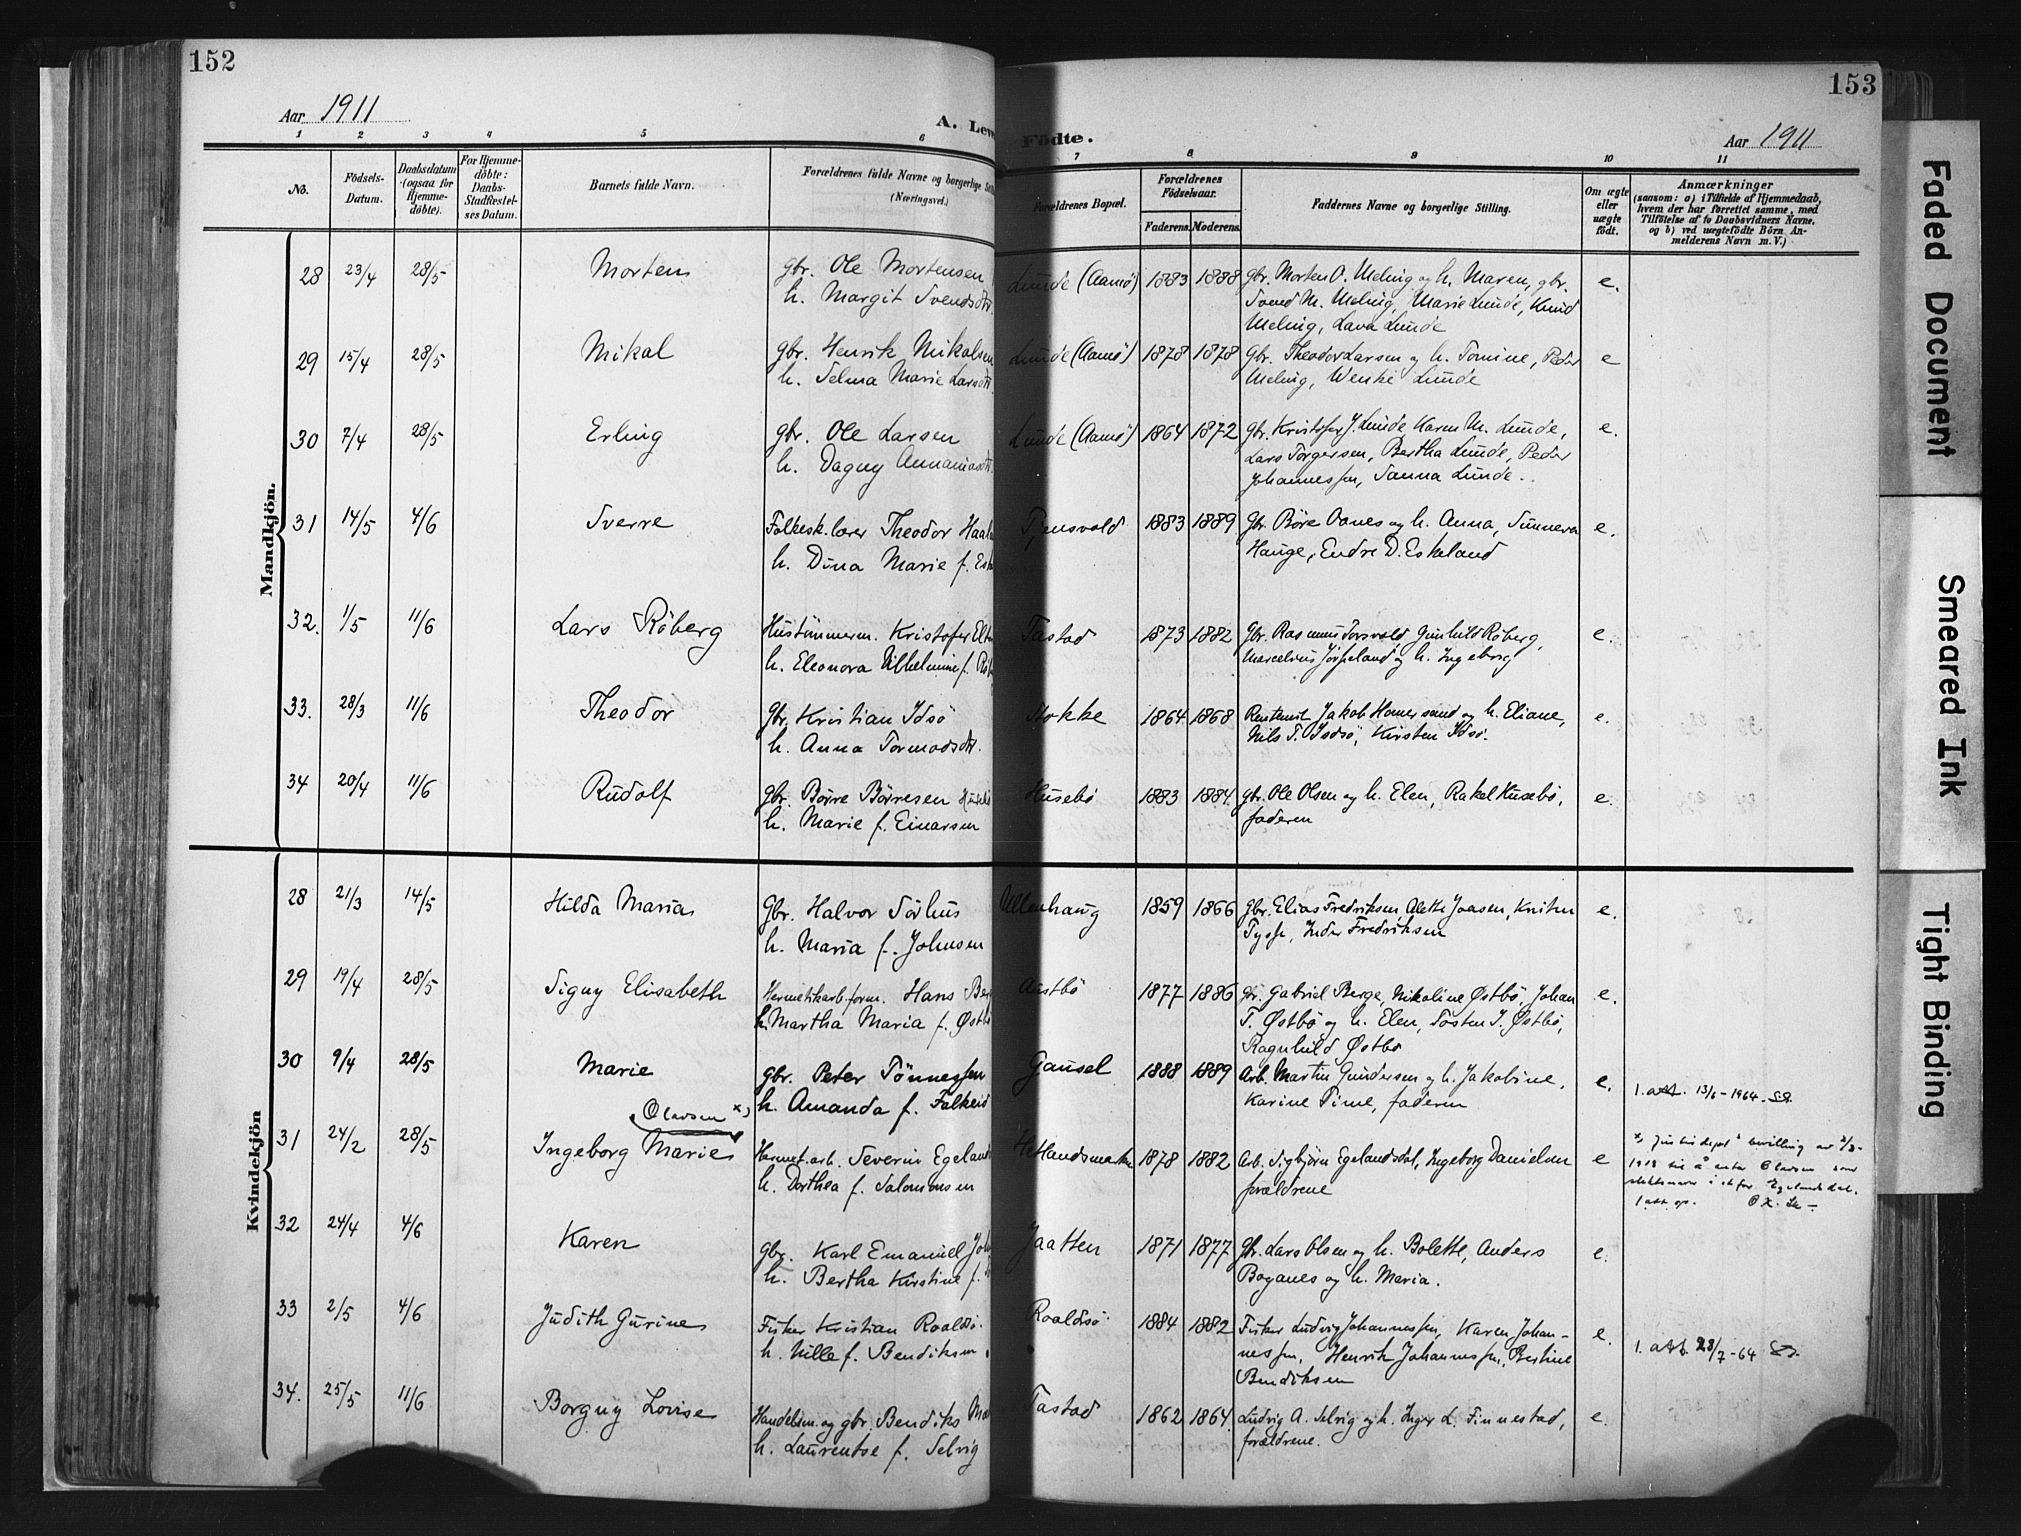 152
Aar 1911
A. Leve
1 2 3 4 5 6
No.
Födsels-
Datum.
Daabsdatum
(ogsaa for
Hjemme-
döbte).
For Hjemme-
döbte:
Daabs-
Stadfæstel-
ses Datum.
Barnets fulde Navn.
Forældrenes fulde Navne og borgerlige Still
(Næringsvei.)
Mandkjön.
28 23/4 28/5 Morten gbr. Ole Mortensen
h. Margit Svendsdtr.
29 15/4 28/5 Mikal gbr. Henrik Mikalsen
h. Selma Marie Larsdtr
30 7/4 28/5 Erling gbr. Ole Larsen
h. Dagny Annaniasdtr
31 14/5 4/6 Sverre Folkesk.lærer Theodor Haal
h. Dina Marie f. Esk
32. 1/5 11/6 Lars Röberg Hustömmerm. Kristofer Elt
h. Eleonora Vilhelmine f. Rö
33. 28/3 11/6 Theodor gbr. Kristian Idsö
h. Anna Tormodsdtr.
34 20/4 11/6 Rudolf gbr. Börre Börresen Husebö
h. Marie f. Einarsen
Kvindekjön
28 21/3 14/5 Hilda Maria gbr. Halvor Sörhus
h. Maria f. Johnsen
29 19/4 28/5 Signy Elisabeth Hermetikarb.form. Hans Ber
h. Martha Maria f. Østb
30 9/4 28/5 Marie gbr. Peter Tönnessen
h. Amanda f. Falkeid
Olavsen x)
31 24/2 28/5 Ingeborg Marie Hermet.arb. Severin Egeland
h. Dorthea f. Salomonsen
32 24/4 4/6 Karen gbr. Karl Emanuel Joh
h. Bertha Kirstine f.
33 2/5 4/6 Judith Gurine Fisker Kristian Roaldsö.
h. Nille f. Bendiksen
34. 25/5 11/6 Borgny Lovise Handelsm. og gbr. Bendiks
h. Laurentse f. Selvig
153
Födte.
Aar 1911
7 8 9 10 11
Forældrenes Bopæl.
Forældrenes
Födselsaar.
Faderens. Moderens.
Faddernes Navne og borgerlige Stilling.
Om ægte
eller
uægte
födt.
Anmærkninger
(saasom: a) i Tilfælde af Hjemmedaab,
hvem der har forrettet samme, med
Tilföielse af to Daabsvidners Navne,
og b) ved uægtefödte Börn An-
melderens Navn m. V.)
Lunde (Aamö) 1883 1888 gbr. Morten O. Meling og h. Maren, gbr. e.
Svend M. Meling, Marie Lunde, Knud
Meling, Lava Lunde
Lunde (Aamö) 1878 1878 gbr. Theodor Larsen og h. Tomine, Peder e
Meling, Wenke Lunde
Lunde (Aamö) 1864 1872 gbr. Kristofer J. Lunde Karen M. Lunde, e.
Lars Törgersen, Bertha Lunde, Peder
Johannessen, Sanna Lunde.
Tjensvold 1883 1889 gbr. Böre Oanes og h. Anna, Sunneva e.
Hauge, Endre D. Eskeland
Tastad 1873 1882 gbr. Rasmus Torsvold Gunhild Röberg, e.
Marcelius Jörpeland og h. Ingeborg
Stokke 1864 1868 Jakob Homersand og h. Eliane, e.
Nils T. Idsö, Kirsten Idsö.
Husebö 1883 1884. gbr. Ole Olsen og h. Elen, Rakel Husebö, e.
faderen
Ullenhaug 1859 1866 gbr. Elias Fredriksen, Alette Joasen, e.
Tysse, Fredriksen
Austbö 1877 1886 gbr. Gabriel Berge, Nikoline Østbö, Johan e.
T. Østbö og h. Elen, Tosten J. Østbö,
Ragnhild Østbö
Gausel 1888 1889 Arb. Martin Gundersen og h. Jakobine, e.
Karine Time, faderen
1. att. 13/6-1964. SA.
Hetlandsmarken 1878 1882 Arb. Sigbjörn Egelandsdal, Ingeborg Danielsen e
forældrene
x) Justisdept's bevilling av 2/3-
1918 til å anta Olavsen som
slektsnavn istfor Egelandsdal.
1 att.
Jaatten 1871 1877 gbr. Lars Olsen og h. Bolette, Anders e.
Boganes og h. Maria.
Roaldsö. 1884 1882 Fisker Ludvig Johannessen, Karen Johan- e.
nessen, Henrik Johannessen, Bertine
Bendiksen
1. att. 28/7-64
Tastad 1862 1864. Ludvig A. Selvig og h. Inger L. Finnestad, e.
forældrene.
Faded Document
Smeared Ink
Tight Binding